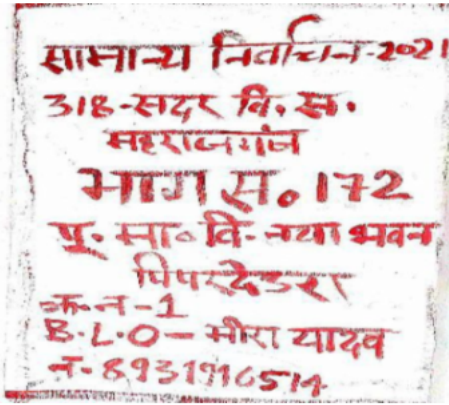 सामान्य निर्वाचन-2021
318-सदर वि.स.
महराजगंज
भाग स. 172
पू. मा० वि- नया भवन
पिपरदेउरा
क.न-1
B.L.O- मीरा यादव
न-8931916514